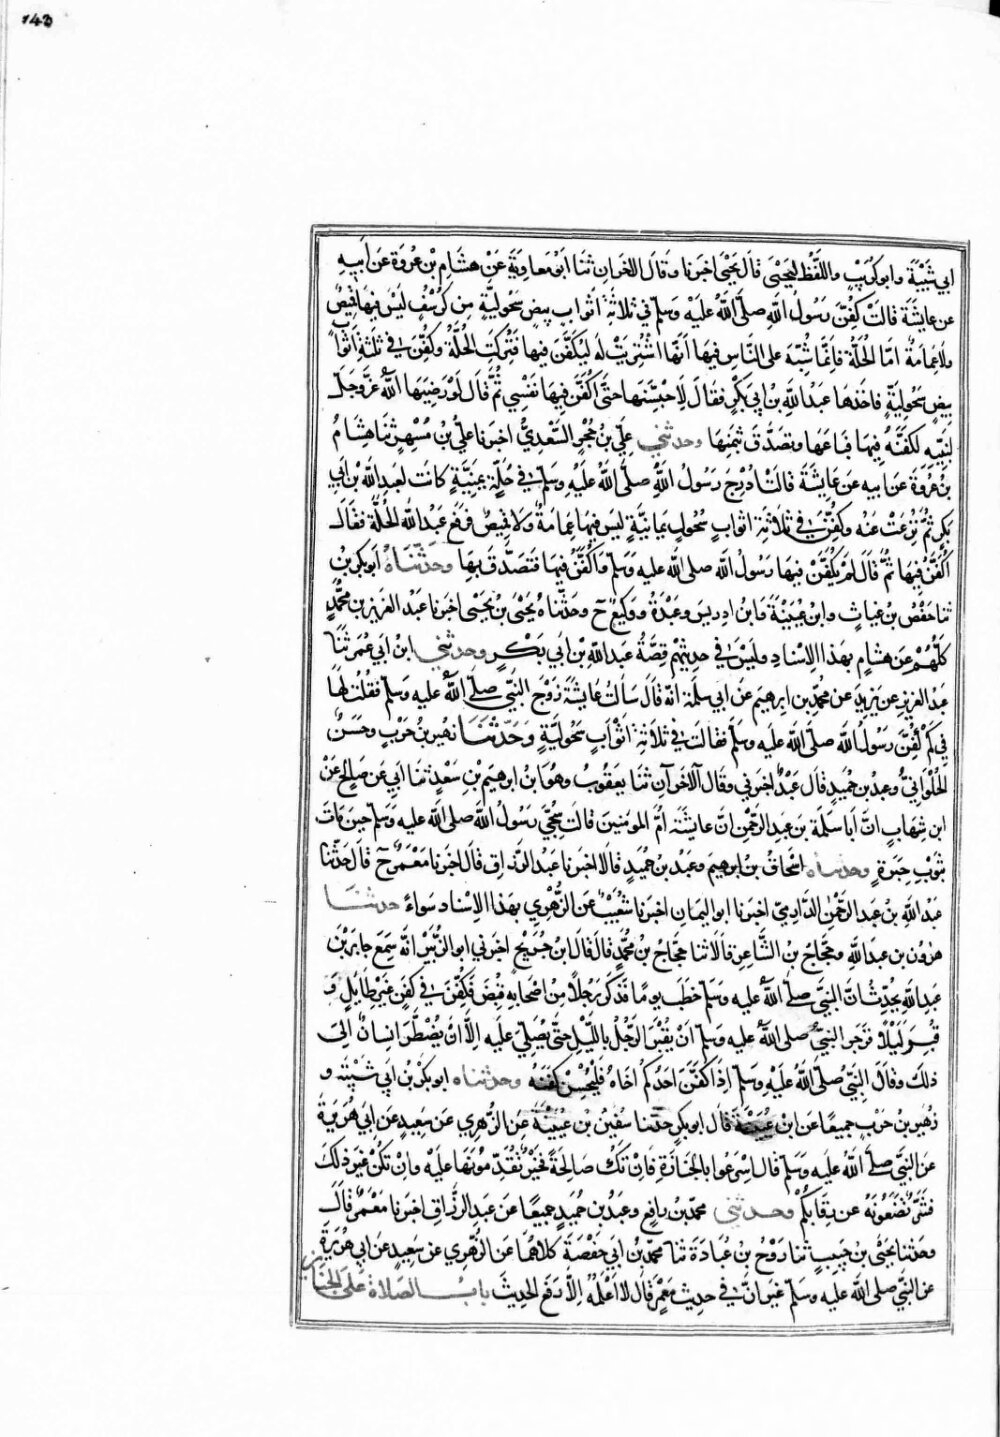 143
ابي شَيْبَةَ وابو كُرَيْبٍ واللَّفْظ ليَحْيَى قالَ يَحْيَى اخبرنا وقالَ الاخران ثنا ابُو معاوِيَةَ عَنْ هشَام بْن عُروَةَ عَن ابيهِ
عن عايشَةَ قالَتْ كُفِّنَ رَسُولُ اللَّهِ صلَّى اللَّهُ عليْهِ وَسلّم في ثلاثةِ اثْوابٍ بيضٍ سَحُوليَّةٍ مِن كُرْسُفٍ ليْسَ فيهَا قميصٌ
ولا عِمامَةٌ امّا الحُلَّةُ فَانَّما شُبِّهَ على النَّاسِ فيهَا أَنَّها اشْتُرِيَتْ لَه لِيُكَفَّنَ فيها فَتُركَتِ الحُلَّةُ وكُفِّنَ في ثلثةِ اثوابٍ
بيضٍ سَحُوليَّةٍ فاخَذهَا عَبْدُ اللَّهِ بن ابي بَكْرٍ فقالَ لَاَحْبِسَنَّهَا حتّى اُكَفِّنَ فيهَا نَفْسِي ثُمَّ قالَ لَوْ رَضِيَهَا اللَّهُ عزَّ وجلّ
لِنَبِيّهِ لكَفَّنَهُ فيهَا فبَاعَهَا وتصَدَّقَ بثَمنهَا وحدثني عَليّ بن حُجْرٍ السَّعْدِيُّ اخبرنا عليُّ بن مُسْهِرٍ ثنَا هِشَامُ
بنُ عُروَةَ عَن ابيه عَن عَايِشَةَ قالَتْ اُدْرِجَ رَسُولُ اللَّهِ صلَّى اللَّهُ عليْهِ وسَلّمَ في حُلَّةٍ يمنيَّةٍ كانت لعَبد اللَّه بن ابي
بكرٍ ثمَّ نُزِعَتْ عَنْهُ وكُفِّنَ في ثلاثةِ اثوابٍ سُحُولٍ يَمانيَّةٍ ليسَ فيهَا عِمامةٌ ولا قميصٌ فرفعَ عَبْدُ اللَّه الحُلَّةَ فقالَ
أُكَفَّنُ فيهَا ثُمَّ قالَ لمْ يُكَفَّنْ فيهَا رَسُولُ اللَّه صلى اللَّه عليه وَسلّم وَاُكَفَّنُ فيهَا فتَصَدَّق بهَا وحَدَّثنَاهُ ابُو بكر بنُ
ثنا حَفْصُ بنُ غياثٍ وابنُ عُيَيْنَةَ وَابنُ ادريسَ وعَبْدَةُ ووكيعٌ ح وحَدَّثنَاهُ يحيَى بن يَحْيَى اخبَرنا عَبْدُ العَزيز بن محمّدٍ
كلُّهُمْ عن هشامٍ بهَذا الاسنادِ وليسَ في حديثهم قصَّةُ عبد اللَّه بن ابي بَكْرٍ وحدثني ابنُ ابي عُمَر ثَنَا
عَبد العَزيز عن يَزيدَ عن محمَّد بن ابرهيمَ عَن ابي سَلمَةَ انّه قالَ سَألتُ عَايشَةَ زَوْجَ النبيِّ صلى اللَّه عليه وسلّم فقُلتُ لَهَا
في كَمْ كُفِّنَ رسولُ اللَّه صلَّى اللَّه عليه وسلّم فقالت في ثلاثةِ اثوابٍ سَحُوليَّةٍ وَحَدَّثَنَا زُهيرُ بنُ حَرْبٍ وحَسَنٌ
الحُلْوَانيُّ وعبدُ بن حُميدٍ قال عَبْدٌ اخبَرني وقال الآخَرَان ثنا يعقوبُ وهُوَ ابنُ ابرهيمَ بنِ سَعْدٍ ثنا ابي عن صَالحٍ عَنْ
ابن شهَابٍ انَّ ابَا سَلَمَةَ بن عَبد الرَّحمن انَّ عايشَةَ امَّ الموْمنينَ قالت سُجِّيَ رَسُولُ اللَّه صلَّى اللَّه عليه وَسلّم حينَ ماتَ
بثَوْبِ حِبَرَةٍ وحدثناه اسْحَاقُ بن ابرهيمَ وعَبدُ بن حُمَيدٍ قالا اخبرنا عَبدُ الرزاق قالَ اخبرنا مَعْمَرٌ ح قالَ حَدّثنا
عَبْدُ اللَّهِ بن عبد الرَّحمن الدَّارِميّ اخبَرنا ابو اليمان اخبرنا شُعَيْبٌ عَن الزُّهْرِيِّ بهذا الاسْنادِ سَواءً حدثنَا
هرُون بن عَبد اللَّهِ وحجّاجُ بنُ الشَّاعِرِ قالا ثنا حجّاجُ بن محُمَّدٍ قالَ قالَ ابنُ جُرَيْجٍ اخبَرني ابو الزُّبَيْرِ انّه سَمِعَ جابرَ بْنَ
عَبد اللَّهِ يحَدِّثُ انَّ النبيَّ صلى اللَّهُ عليه وسَلّم خَطبَ يومًا فذَكَرَ رَجُلًا مِنْ اصْحَابهِ قُبضَ فَكُفِّنَ في كَفَنٍ غيرِ طائلٍ وَ
قُبِرَ لَيْلًا فزجَرَ النبيُّ صلى اللَّهُ عليه وسَلّم اَنْ يُقْبَرَ الرّجُلُ باللَّيْلِ حتَّى يُصَلَّى عَليه اِلَّا انْ يُضْطَرَّ انسانٌ الى
ذلكَ وقالَ النَّبيُّ صلَّى اللَّهُ عليْهِ وسَلّم اِذا كَفَّنَ احَدُكُمْ اخَاهُ فليُحْسِنْ كَفَنَهُ وحدثناه ابو بكر بن ابي شَيْبَة و
زُهَير بن حَرْبٍ جميعًا عَن ابن عُيَيْنةَ قال ابو بكرٍ حدّثنا سُفْينُ بن عُيَيْنَةَ عن الزُّهري عَن سَعيدٍ عَن ابي هُرَيرةَ
عَن النبيِّ صلى اللَّهُ عليه وسلّم قالَ اسْرعُوا بالجَنازةِ فانْ تَكُ صَالحةً فَخَيْرٌ تُقَدِّمُونَهَا عليْه وانْ تكُنْ غيرَ ذلكَ
فشَرٌّ تَضَعُونَهُ عن رِقابكُمْ وحدثني محمّد بن رافعٍ وعَبْدُ بن حُمَيدٍ جميعًا عَن عَبد الرزَّاق اخبَرنا مَعْمَرٌ قالَ
وحَدثنا يحيَى بنُ حبيبٍ ثنا رَوْحُ بنُ عُبَادَةَ ثنا محمَّد بن ابي حَفْصَةَ كلاهُمَا عن الزُّهريّ عن سَعِيدٍ عَن ابي هُريرةَ
عن النَّبيّ صلَّى اللَّه عليه وسلّم غير انَّ في حَديث مَعْمَرٍ قالَ لا اَعْلَمُهُ اِلّا رفَعَ الحديثَ باب الصّلاة عَلى الجنائز